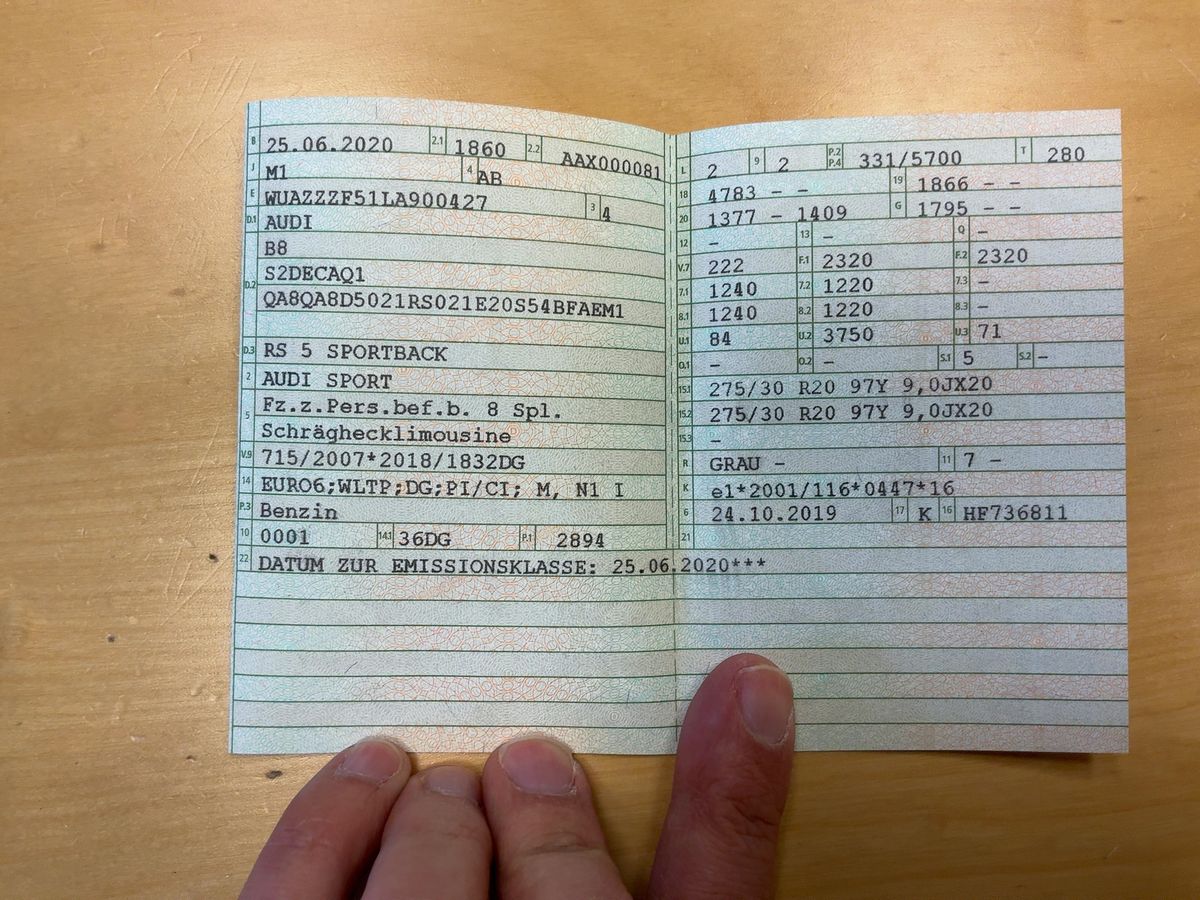 B 25.06.2020 2.1 1860 2.2 AAX000081
J M1 4 AB
E WUAZZZF51LA900427 3 4
D.1 AUDI
B8
D.2 S2DECAQ1
QA8QA8D5021RS021E20S54BFAEM1
D.3 RS 5 SPORTBACK
2 AUDI SPORT
5 Fz.z.Pers.bef.b. 8 Spl.
Schräghecklimousine
V.9 715/2007*2018/1832DG
14 EURO6;WLTP;DG;PI/CI; M, N1 I
P.3 Benzin
10 0001 14.1 36DG P.1 2894
22 DATUM ZUR EMISSIONSKLASSE: 25.06.2020***
L 2 9 2 P.2 P.4 331/5700 T 280
18 4783 - - 19 1866 - -
20 1377 - 1409 G 1795 - -
12 - 13 - Q -
V.7 222 F.1 2320 F.2 2320
7.1 1240 7.2 1220 7.3 -
8.1 1240 8.2 1220 8.3 -
U.1 84 U.2 3750 U.3 71
O.1 - O.2 - S.1 5 S.2 -
15.1 275/30 R20 97Y 9,0JX20
15.2 275/30 R20 97Y 9,0JX20
15.3 -
R GRAU - 11 7 -
K e1*2001/116*0447*16
6 24.10.2019 17 K 16 HF736811
21